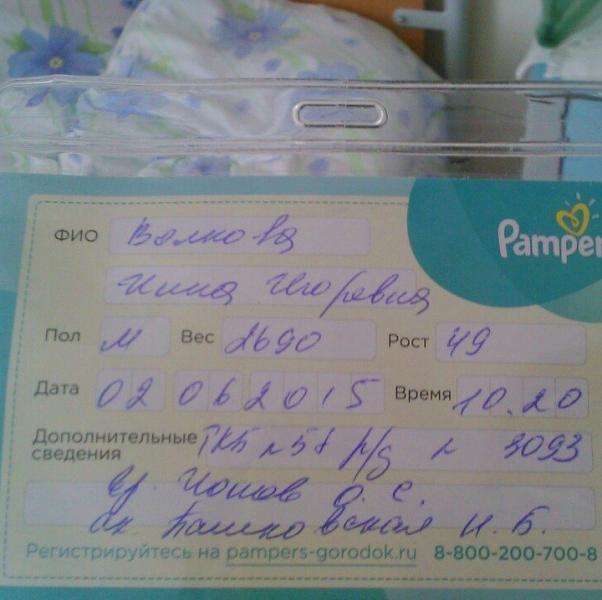 Pampers
ФИО Волкова
Нина Игоревна
Пол М Вес 2690 Рост 49
Дата 02 06 2015 Время 10.20
Дополнительные сведения ГКБ № р/д № 3093
О. С.
ак. Башковская И. Б.
Регистрируйтесь на pampers-gorodok.ru 8-800-200-700-8